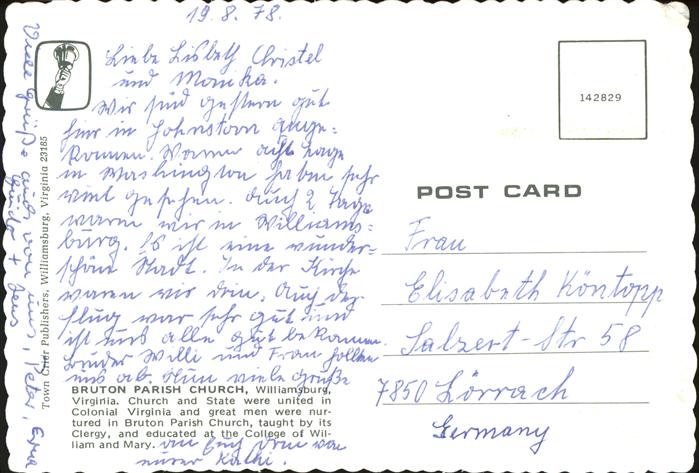 19. 8. 78.
Liebe Lisbeth Christel
und Monika.
Wir sind gestern gut
hier in Johnstown ange=
kommen. Waren acht Tage
in Washington haben sehr
viel gesehen. Auch 2 Tage
waren wir in Williams=
burg. Es ist eine wunder=
schöne Stadt. In der Kirche
waren wir drin. Auch der
Flug war sehr gut und
ist uns alle gut bekommen.
Bruder Willi und Frau hollten
uns ab. Nun viele Grüße
an Euch drei von
eurer Käthi.
Viele Grüße auch von uns, Peter, Erna
+ Jens
Town Crier Publishers, Williamsburg, Virginia 23185
BRUTON PARISH CHURCH, Williamsburg,
Virginia. Church and State were united in
Colonial Virginia and great men were nur-
tured in Bruton Parish Church, taught by its
Clergy, and educated at the College of Wil-
liam and Mary.
142829
POST CARD
Frau
Elisabeth Köntopp
Salzert-Str 58
7850 Lörrach
Germany